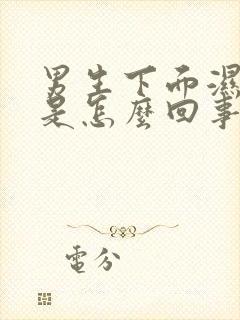 男生下面濕
是怎麼回事
電分